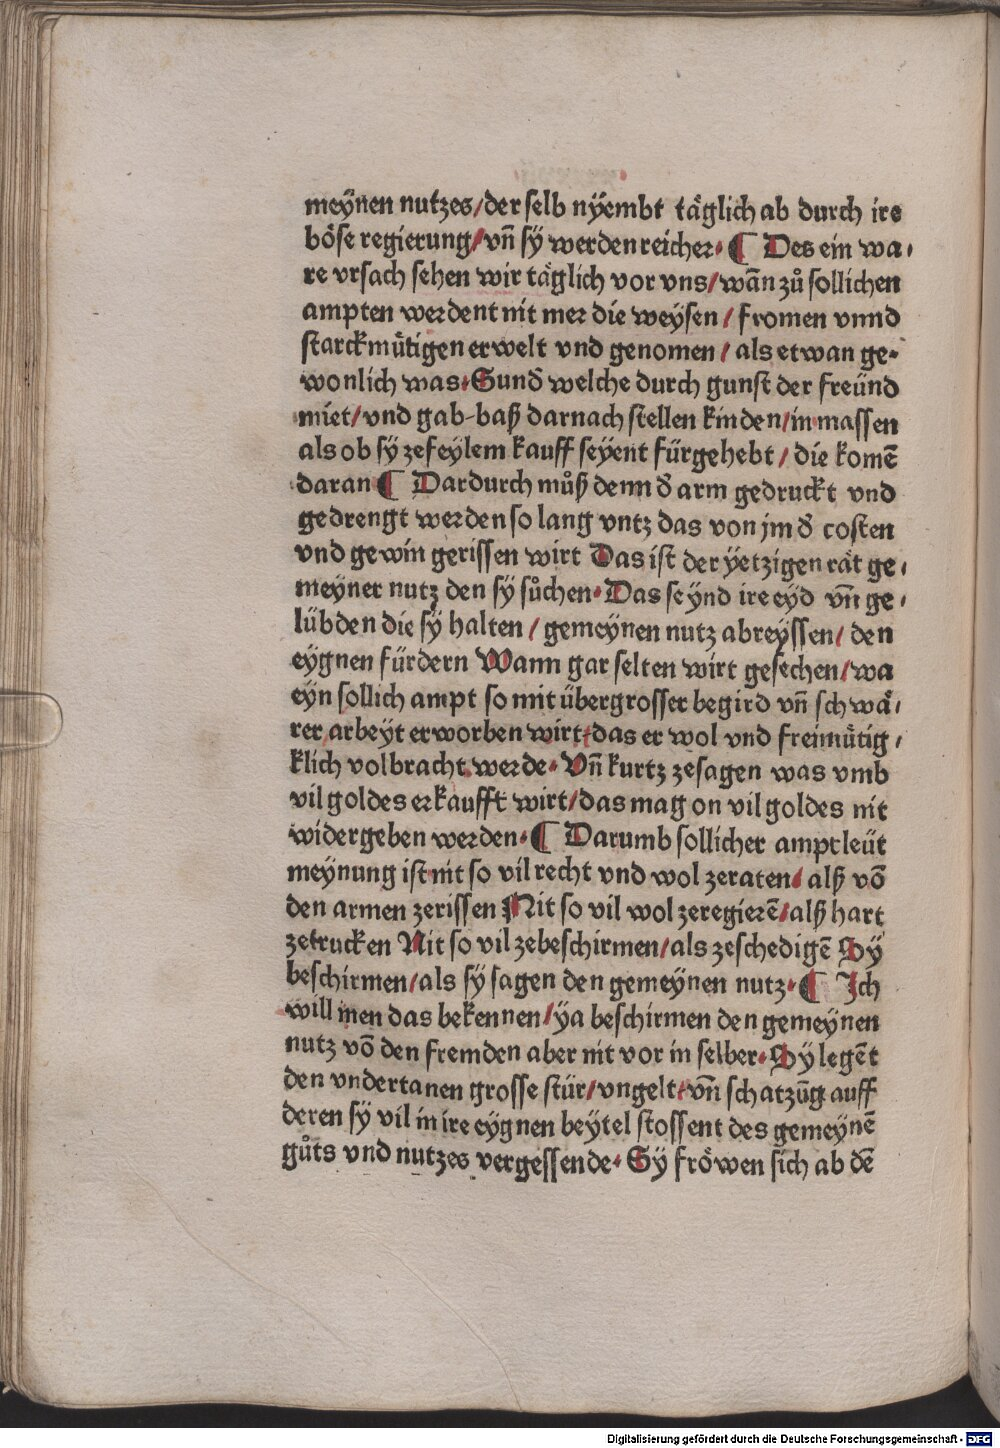 meynen nutzes/der selb nyembt täglich ab durch ire
böse regierung/vñ sy werden reicher· ¶ Des ein wa⸗
re vrsach sehen wir täglich vor vns/wañ zů sollichen
ampten werdent nit mer die weysen/ fromen vnnd
starckmütigen erwelt vnd genomen/ als etwan ge⸗
wonlich was·Sund̛ welche durch gunst der freünd
miet/vnd gab-baß darnach stellen kinden/in massen
als ob sy zefeylem kauff seyent fürgehebt/ die komē
daran ¶ Dardurch můß denn d̛ arm gedruckt vnd
gedrengt werden so lang vntz das von jm d̛ costen
vnd gewin gerissen wirt Das ist der yetzigen rät ge⸗
meyner nutz den sy sůchen· Das seynd ire eyd vñ ge⸗
lübden die sy halten/ gemeynen nutz abreyssen/ den
eygnen fürdern Wann gar selten wirt gesechen/wa
eyn sollich ampt so mit übergrosser begird vñ schwä⸗
rer arbeyt erworben wirt/das er wol vnd freimütig⸗
klich volbracht werde· Vñ kurtz zesagen was vmb
vil goldes erkaufft wirt/das mag on vil goldes nit
widergeben werden· ¶ Darumb sollicher amptleüt
meynung ist nit so vil recht vnd wol zeraten/ alß vō
den armen zerissen Nit so vil wol zegierē/alß hart
zetrucken Nit so vil zebeschirmen/als zeschedigē Sy
beschirmen/als sy sagen den gemeynen nutz· ¶ Ich
will inen das bekennen/ya beschirmen den gemeynen
nutz vō den fremden aber nit vor in selber· Sy legēt
den vndertanen grosse stür/vngelt/vñ schatzūg auff
deren sy vil in ire eygnen beytel stossent des gemeynē
gůts vnd nutzes vergessende· Sy fröwen sich ab dē
Digitalisierung gefördert durch die Deutsche Forschungsgemeinschaft - DFG